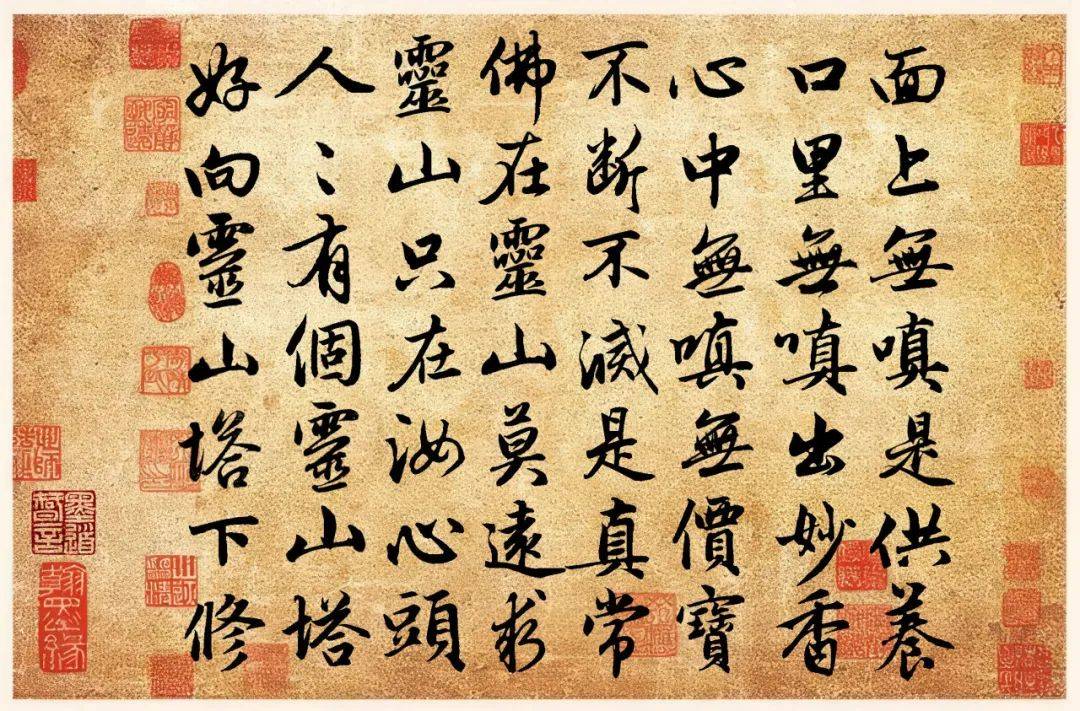 面上無嗔是供養
口里無嗔出妙香
心中無嗔無價寶
不斷不滅是真常
佛在靈山莫遠求
靈山只在汝心頭
人〻有個靈山塔
好向靈山塔下修
翰墨緣